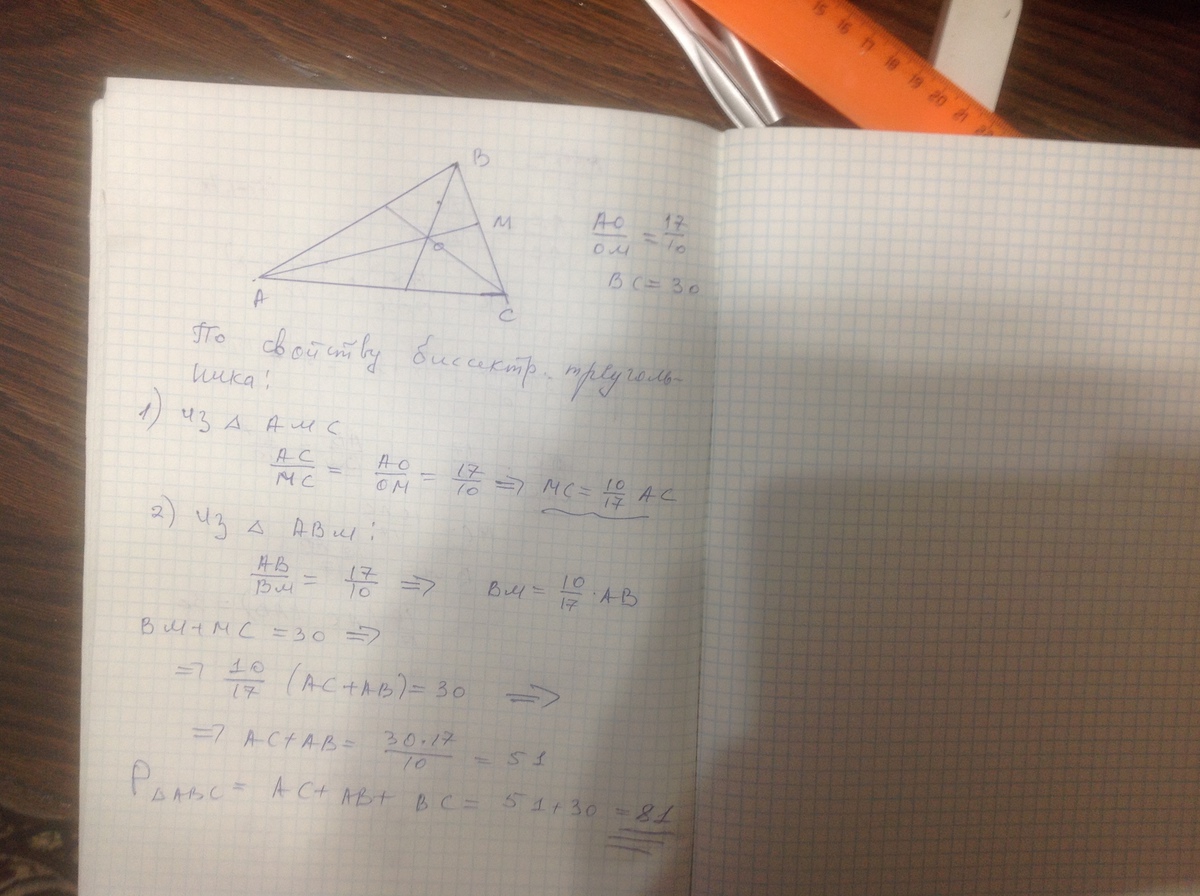 15 16 17 18 19 20 21 22
B
M
O
A
C
AO/OM = 17/10
BC = 30
По свойству биссектр. треуголь-
ника:
1) Из △ AMC
AC/MC = AO/OM = 17/10 => MC = 10/17 AC
2) Из △ ABM:
AB/BM = 17/10 => BM = 10/17 · AB
BM+MC = 30 =>
=> 10/17 (AC+AB) = 30 =>
=> AC+AB = 30·17/10 = 51
P△ABC = AC+ AB+ BC = 51+30 = 81